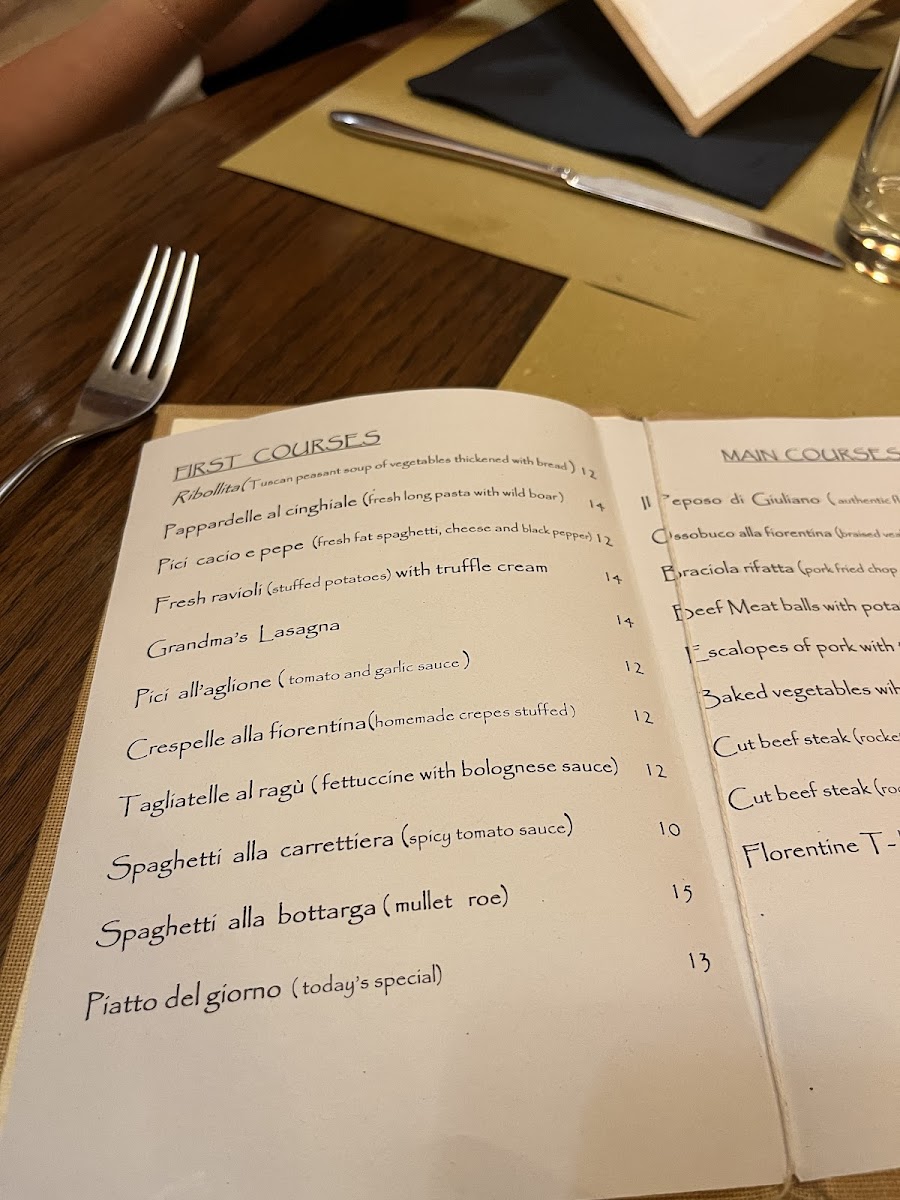 FIRST COURSES
Ribollita (Tuscan peasant soup of vegetables thickened with bread) 12
Pappardelle al cinghiale (fresh long pasta with wild boar) 14
Pici cacio e pepe (fresh fat spaghetti, cheese and black pepper) 12
Fresh ravioli (stuffed potatoes) with truffle cream 14
Grandma's Lasagna 14
Pici all'aglione (tomato and garlic sauce) 12
Crespelle alla fiorentina (homemade crepes stuffed) 12
Tagliatelle al ragù (fettuccine with bolognese sauce) 12
Spaghetti alla carrettiera (spicy tomato sauce) 10
Spaghetti alla bottarga (mullet roe) 15
Piatto del giorno (today's special) 13
MAIN COURSES
Il Peposo di Giuliano (authentic
Ossobuco alla fiorentina (braised
Braciola rifatta (pork fried chop
Beef Meat balls with
Escalopes of pork with
Baked vegetables wih
Cut beef steak
Cut beef steak
Florentine T-